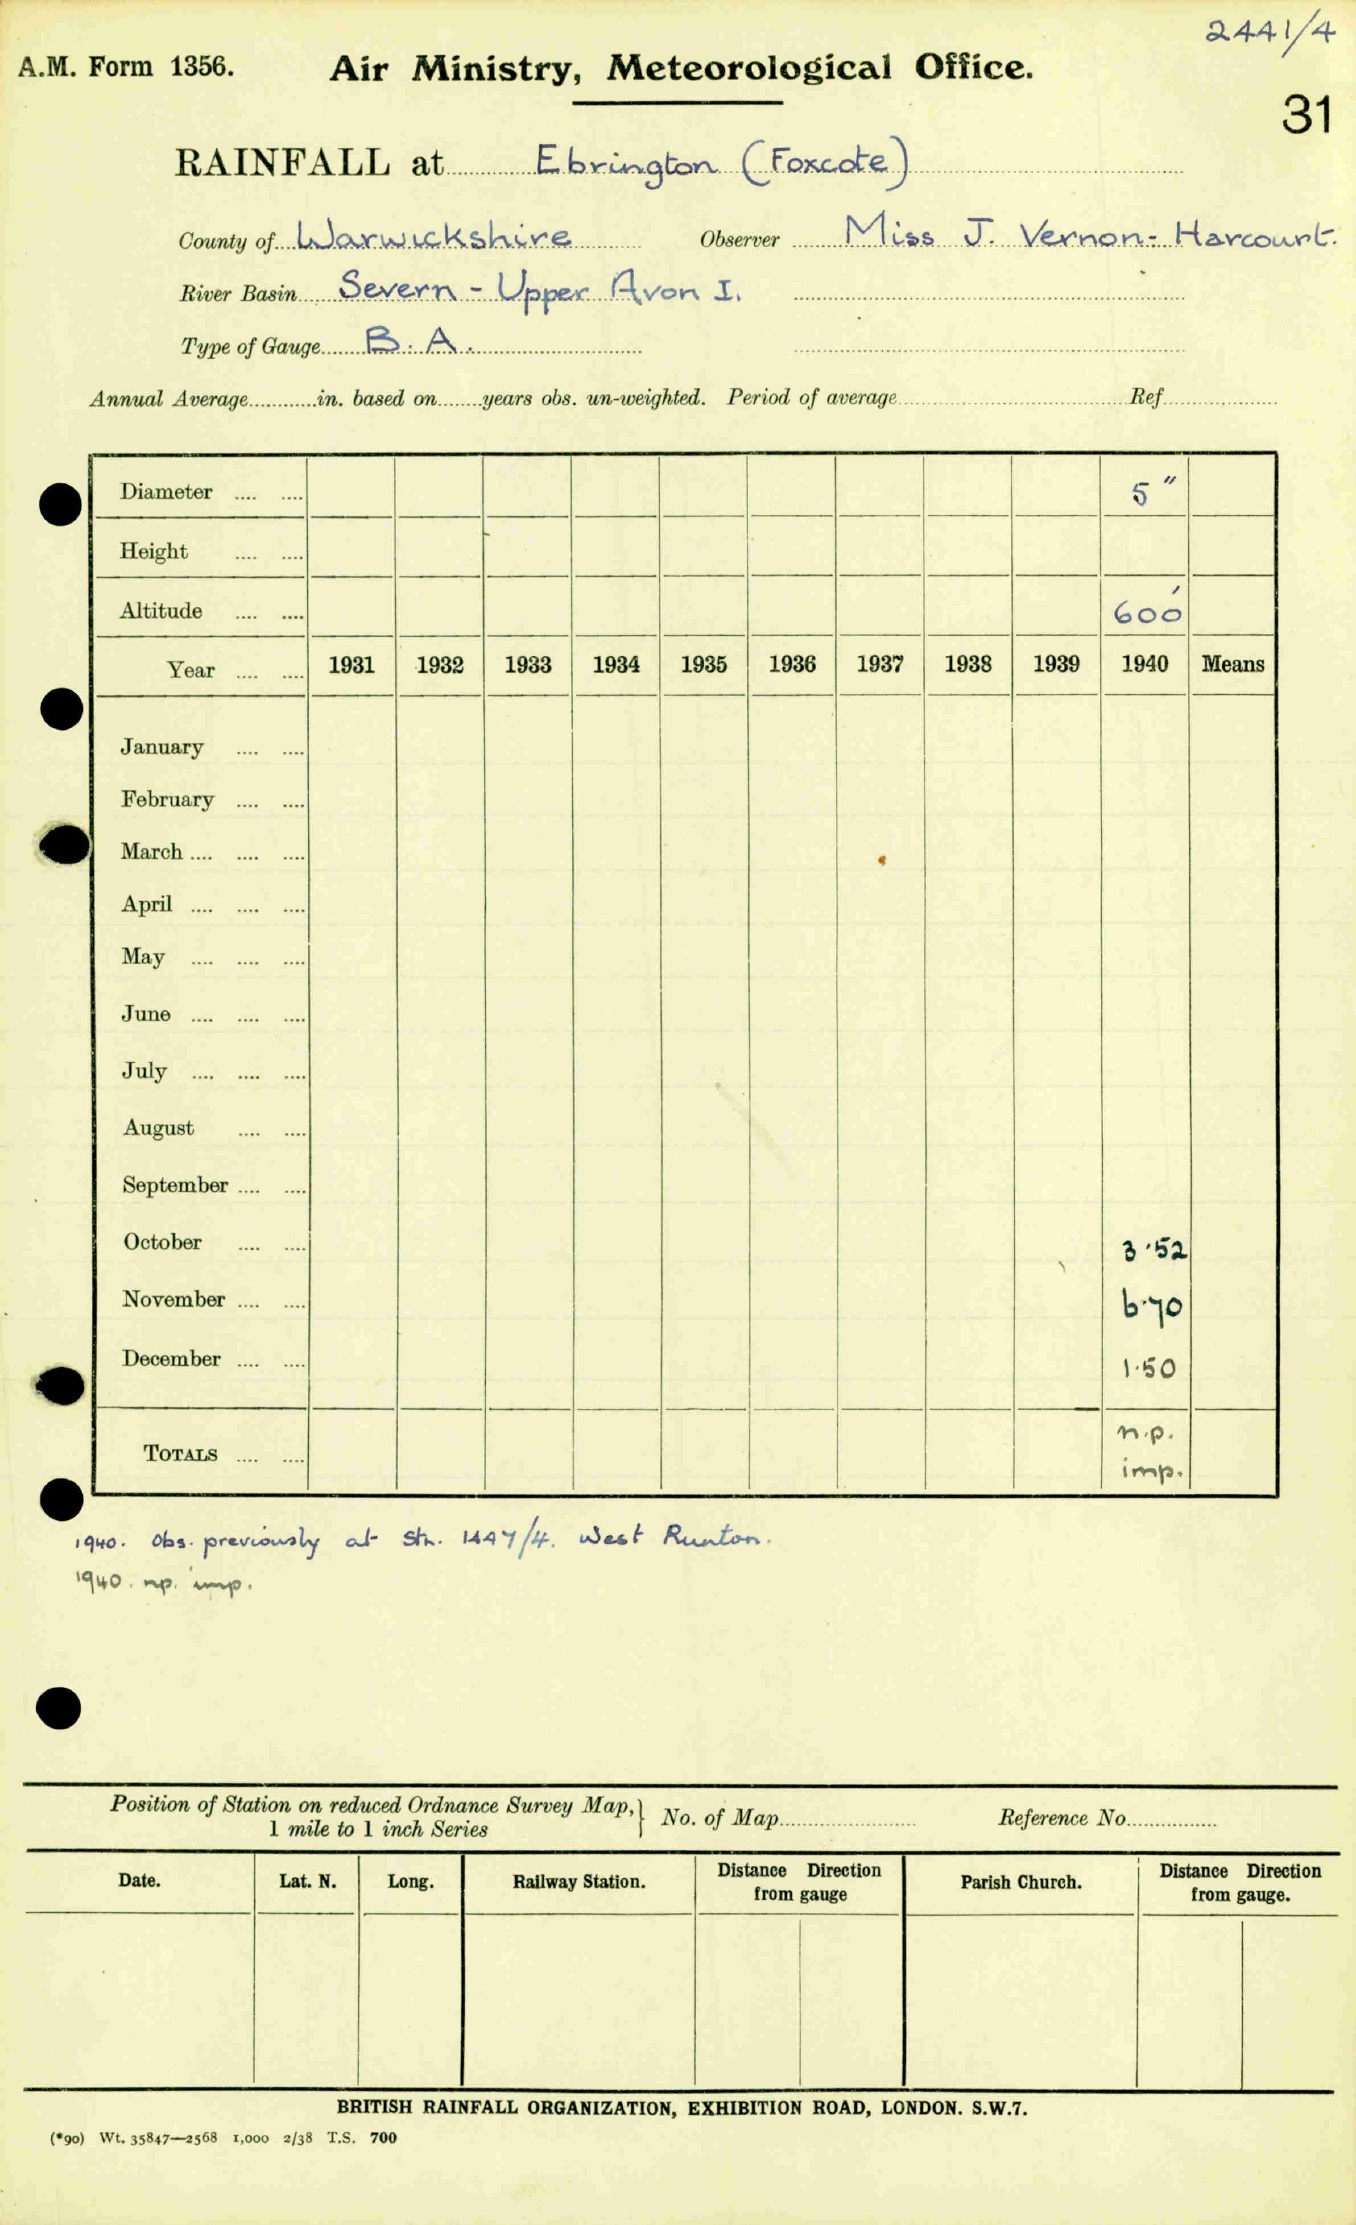 2441/4
A.M. Form 1356. Air Ministry, Meteorological Office.
31
RAINFALL at Ebrington (Foxcote)
County of Warwickshire Observer Miss J. Vernon-Harcourt.
River Basin Severn - Upper Avon I.
Type of Gauge B. A.
Annual Average in. based on years obs. un-weighted. Period of average Ref
Diameter 5"
Height
Altitude 600'
Year 1931 1932 1933 1934 1935 1936 1937 1938 1939 1940 Means
January
February
March
April
May
June
July
August
September
October 3.52
November 6.70
December 1.50
TOTALS n.p.
imp.
1940. Obs. previously at Stn. 1447/4. West Runton.
1940. np. imp.
Position of Station on reduced Ordnance Survey Map, } No. of Map Reference No.
1 mile to 1 inch Series
Date. Lat. N. Long. Railway Station. Distance Direction from gauge Parish Church. Distance Direction from gauge.
BRITISH RAINFALL ORGANIZATION, EXHIBITION ROAD, LONDON. S.W.7.
(*90) Wt. 35847—2568 1,000 2/38 T.S. 700